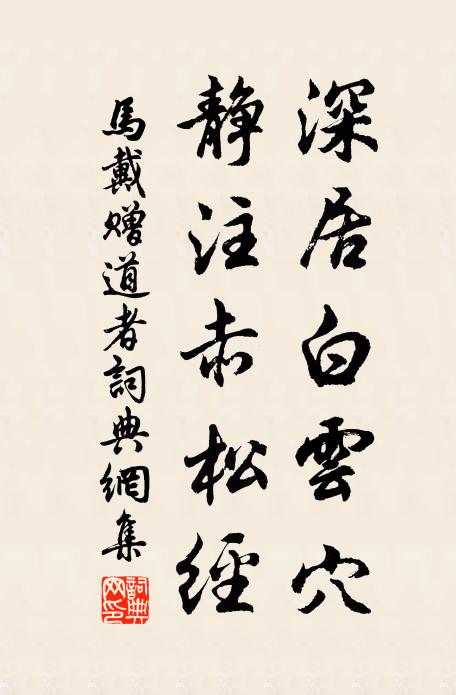 深居白雲穴
静注赤松經
馬戴贈道者詞典網集
詞典网印